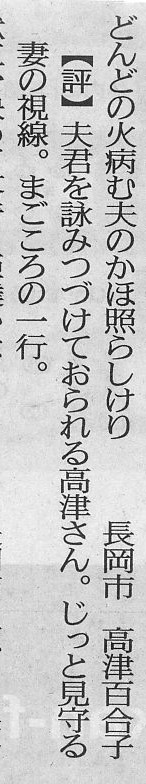 どんどの火病む夫のかほ照らしけり　　長岡市　高津百合子
【評】夫君を詠みつづけておられる高津さん。じっと見守る
妻の視線。まごころの一行。